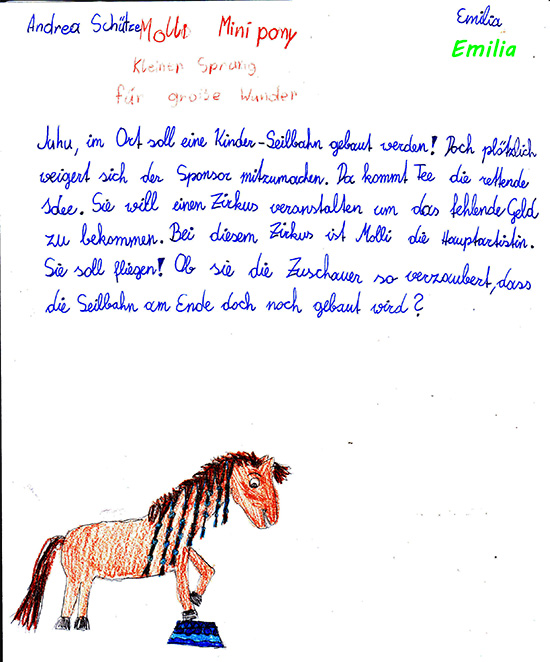 Andrea Schütze Molli Mini pony
Emilia
Emilia
Kleiner Sprung
für große Wunder
Juhu, im Ort soll eine Kinder-Seilbahn gebaut werden! Doch plötzlich
weigert sich der Sponsor mitzumachen. Da kommt Tee die rettende
Idee. Sie will einen Zirkus veranstalten um das fehlende Geld
zu bekommen. Bei diesem Zirkus ist Molli die Hauptartistin.
Sie soll fliegen! Ob sie die Zuschauer so verzaubert, dass
die Seilbahn am Ende doch noch gebaut wird?